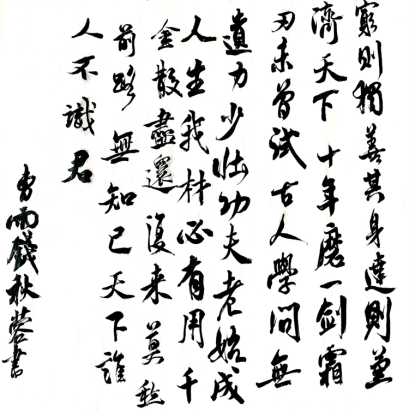 窮則獨善其身達則兼
濟天下十年磨一劍霜
刃未曾試古人學問無
遺力少壯功夫老始成
人生我材必有用千
金散盡還復来莫愁
前路無知已天下誰
人不識君
雨錢秋蓉書